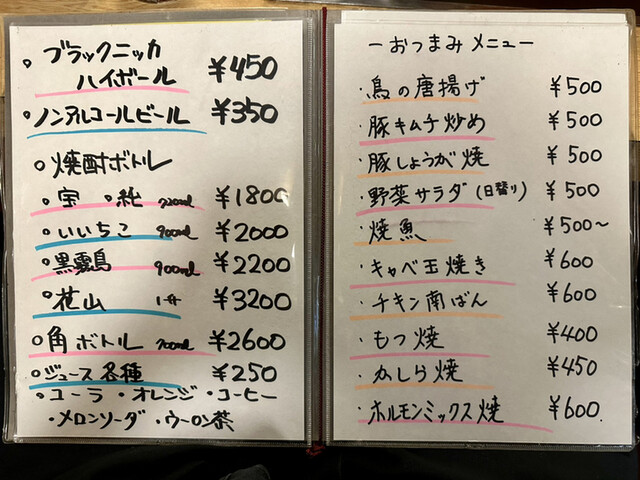 。ブラックニッカ
ハイボール ¥450
○ノンアルコールビール ¥350
○焼酎ボトル
○宝 ○純 720ml ¥1800
○いいちこ 900ml ¥2000
○黒霧島 900ml ¥2200
○花山 1升 ¥3200
○角ボトル 700ml ¥2600
○ジュース各種 ¥250
・コーラ ・オレンジ ・コーヒー
・メロンソーダ ・ウーロン茶
ーおつまみメニュー
・鳥の唐揚げ ¥500
・豚キムチ炒め ¥500
・豚しょうが焼 ¥500
・野菜サラダ(日替り) ¥500
・焼魚 ¥500〜
・キャベ玉焼き ¥600
・チキン南ばん ¥600
・もつ焼 ¥400
・かしら焼 ¥450
・ホルモンミックス焼 ¥600